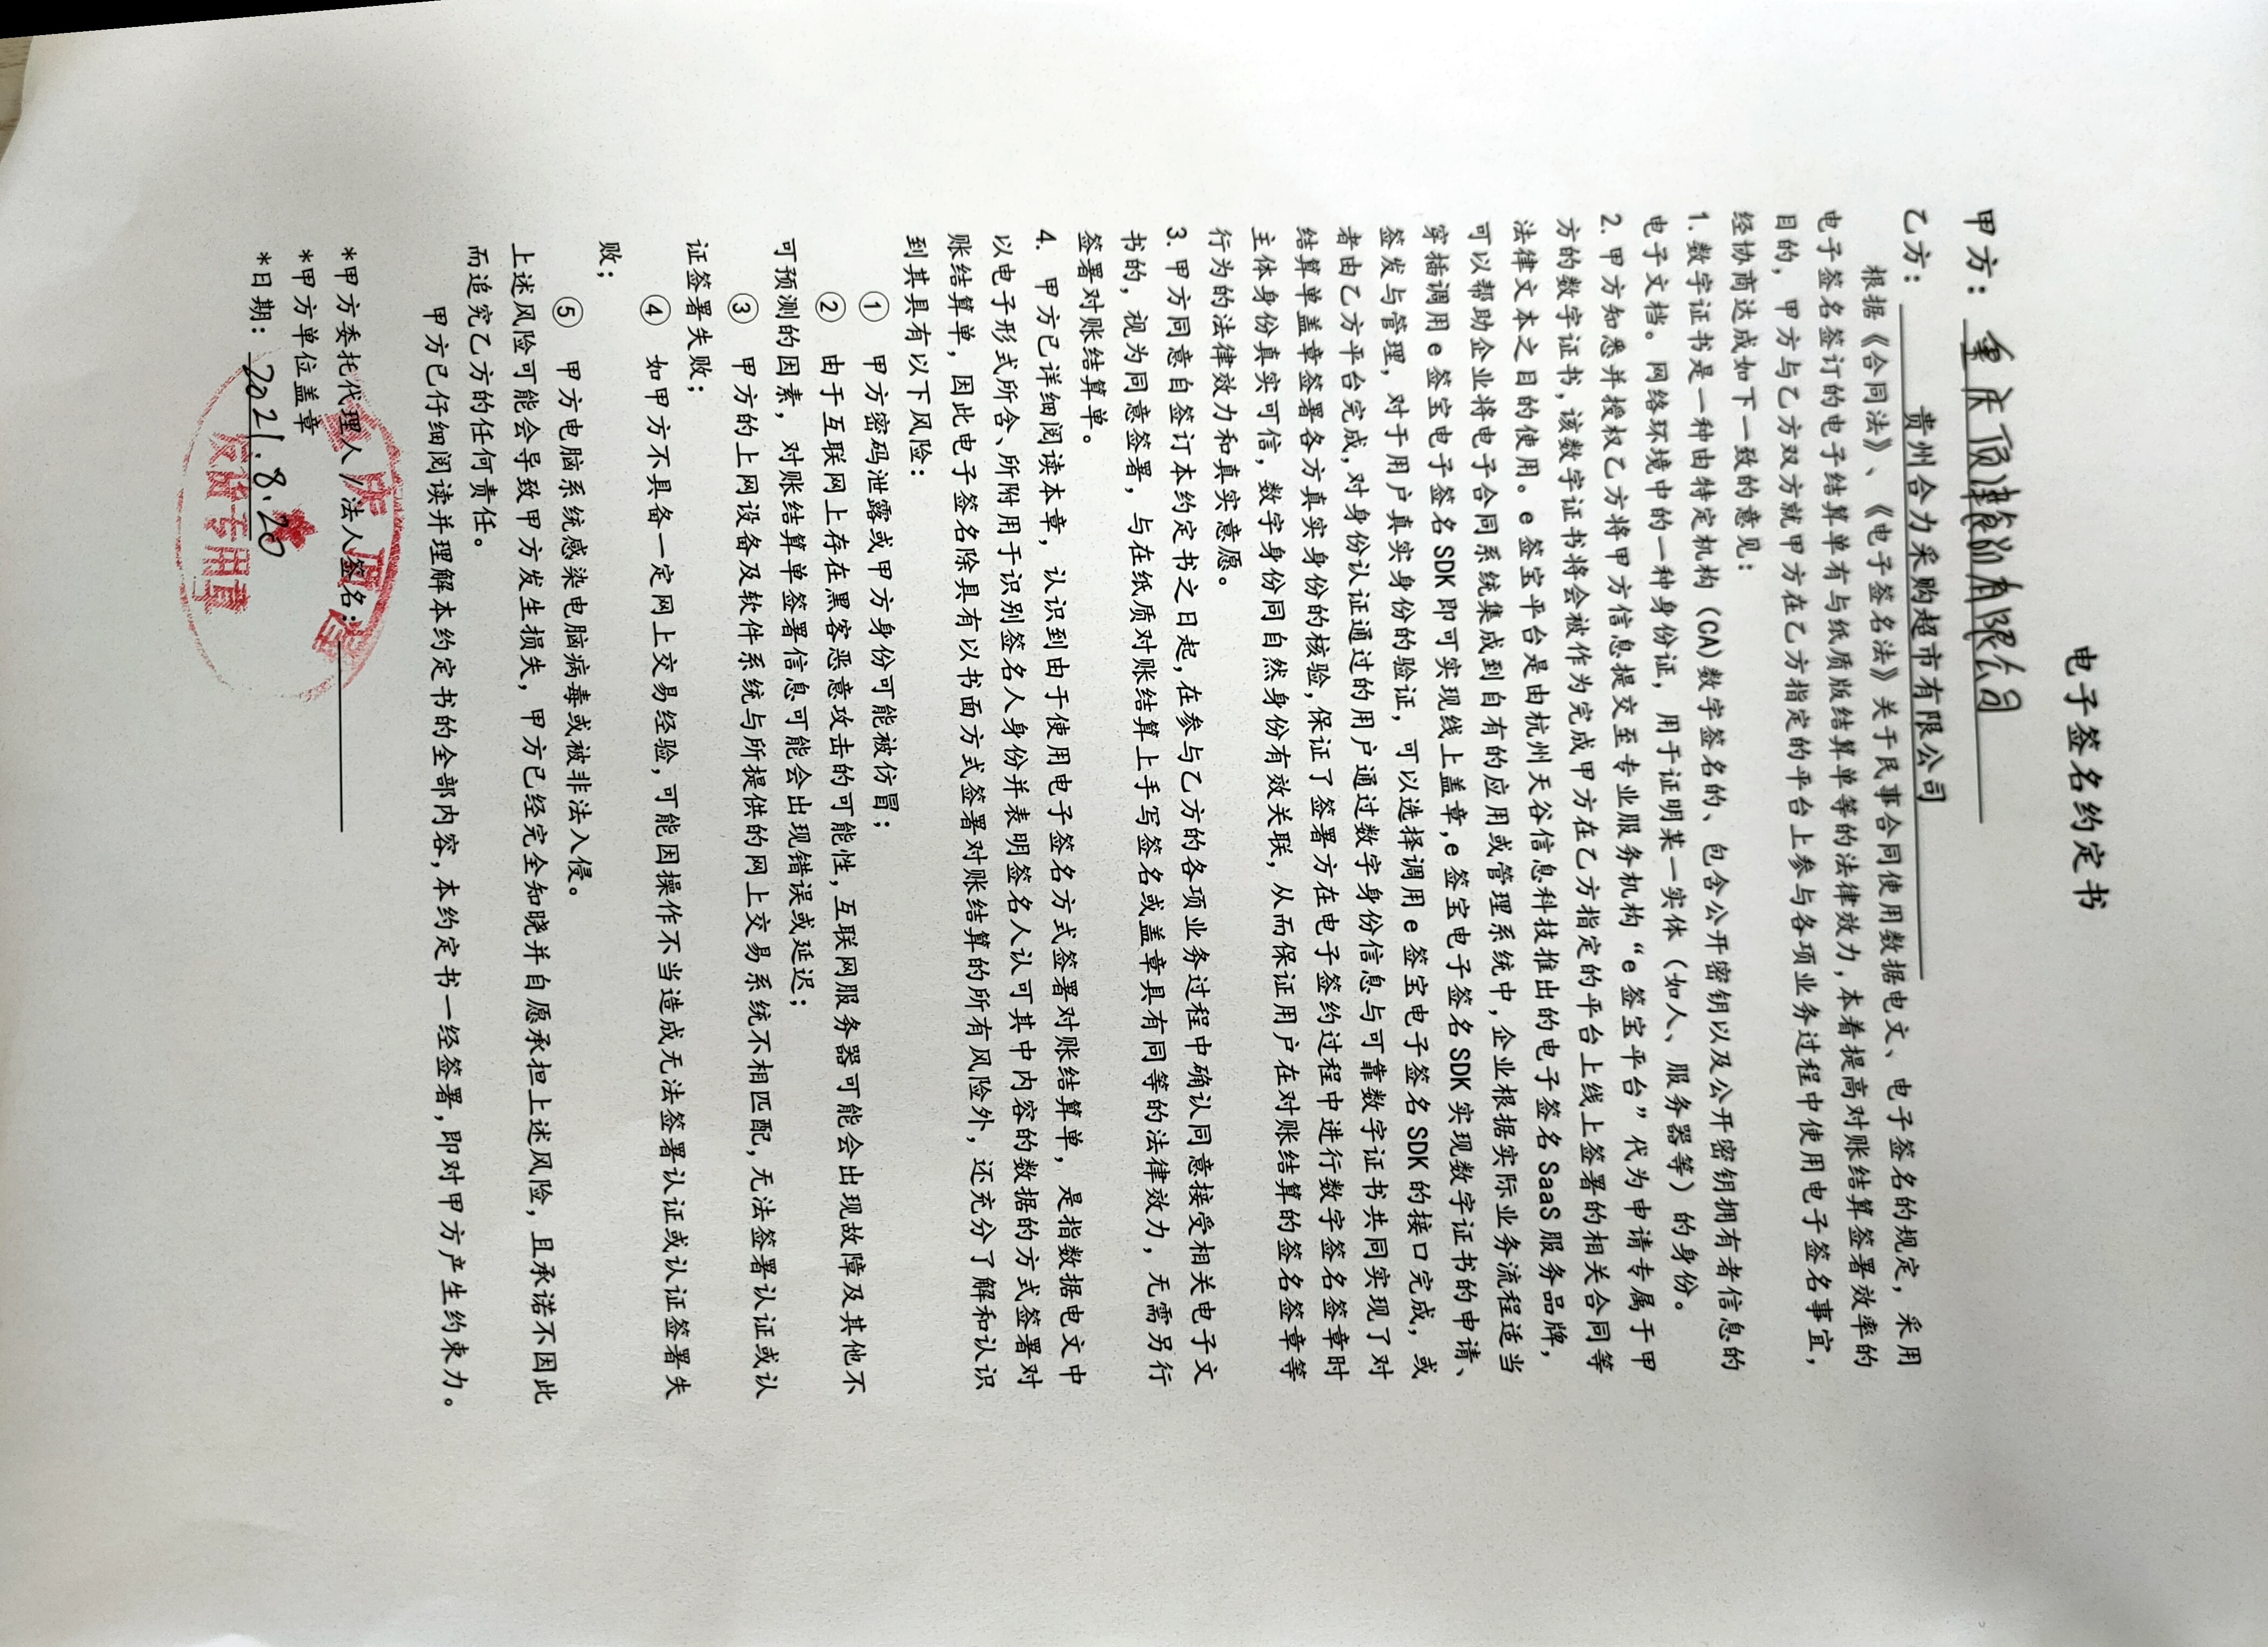 电子签名约定书
甲方：重庆顶津食品有限公司
乙方：贵州合力采购超市有限公司
根据《合同法》、《电子签名法》关于民事合同使用数据电文、电子签名的规定，采用
电子签名签订的电子结算单有与纸质版结算单等的法律效力，本着提高对账结算签署效率的
目的，甲方与乙方双方就甲方在乙方指定的平台上参与各项业务过程中使用电子签名事宜，
经协商达成如下一致的意见：
1. 数字证书是一种由特定机构（CA)数字签名的、包含公开密钥以及公开密钥拥有者信息的
电子文档。网络环境中的一种身份证，用于证明某一实体（如人、服务器等）的身份。
2. 甲方知悉并授权乙方将甲方信息提交至专业服务机构“e签宝平台”代为申请专属于甲
方的数字证书，该数字证书将会被作为完成甲方在乙方指定的平台上线上签署的相关合同等
法律文本之目的使用。e签宝平台是由杭州天谷信息科技推出的电子签名SaaS服务品牌，
可以帮助企业将电子合同系统集成到自有的应用或管理系统中，企业根据实际业务流程适当
穿插调用e签宝电子签名SDK即可实现线上盖章，e签宝电子签名SDK实现数字证书的申请、
签发与管理，对于用户真实身份的验证，可以选择调用e签宝电子签名SDK的接口完成，或
者由乙方平台完成，对身份认证通过的用户通过数字身份信息与可靠数字证书共同实现了对
结算单盖章签署各方真实身份的核验，保证了签署方在电子签约过程中进行数字签名签章时
主体身份真实可信，数字身份同自然身份有效关联，从而保证用户在对账结算的签名签章等
行为的法律效力和真实意愿。
3. 甲方同意自签订本约定书之日起，在参与乙方的各项业务过程中确认同意接受相关电子文
书的，视为同意签署，与在纸质对账结算上手写签名或盖章具有同等的法律效力，无需另行
签署对账结算单。
4. 甲方已详细阅读本章，认识到由于使用电子签名方式签署对账结算单，是指数据电文中
以电子形式所含、所附用于识别签名人身份并表明签名人认可其中内容的数据的方式签署对
账结算单，因此电子签名除具有以书面方式签署对账结算的所有风险外，还充分了解和认识
到其具有以下风险：
① 甲方密码泄露或甲方身份可能被仿冒；
② 由于互联网上存在黑客恶意攻击的可能性，互联网服务器可能会出现故障及其他不
可预测的因素，对账结算单签署信息可能会出现错误或延迟；
③ 甲方的上网设备及软件系统与所提供的网上交易系统不相匹配，无法签署认证或认
证签署失败；
④ 如甲方不具备一定网上交易经验，可能因操作不当造成无法签署认证或认证签署失
败；
⑤ 甲方电脑系统感染电脑病毒或被非法入侵。
上述风险可能会导致甲方发生损失，甲方已经完全知晓并自愿承担上述风险，且承诺不因此
而追究乙方的任何责任。
甲方已仔细阅读并理解本约定书的全部内容，本约定书一经签署，即对甲方产生约束力。
*甲方委托代理人/法人签名：
*甲方单位盖章
*日期：2021.8.20